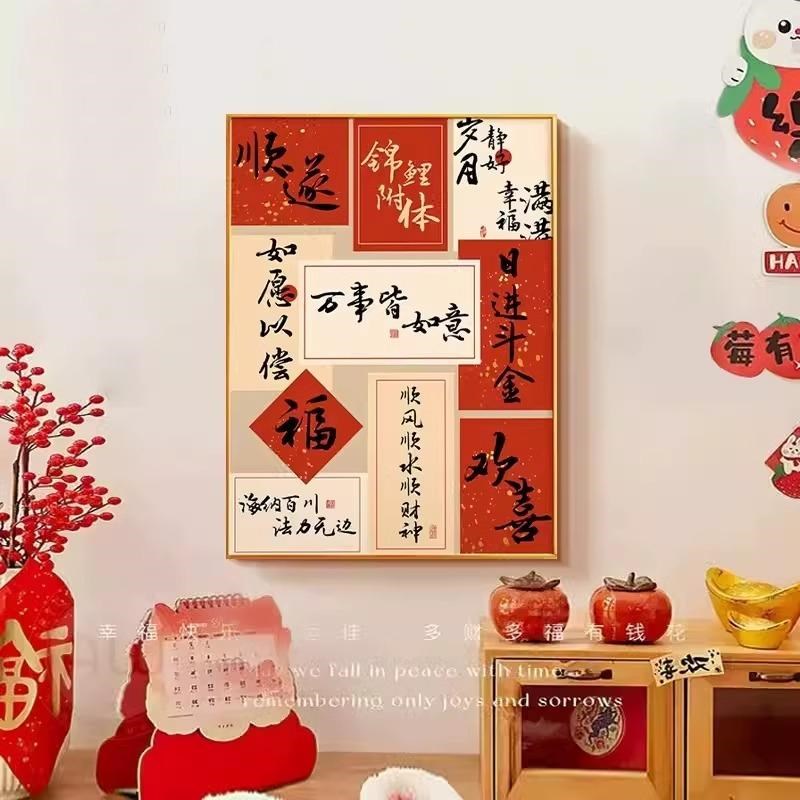 顺遂
锦鲤附体
岁月静好
幸福满满
如愿以偿
万事皆如意
日进斗金
福
顺风顺水顺财神
欢喜
海纳百川
法力无边
莓有
福
幸福快乐
多财多福有钱花
we fall in peace with time
remembering only joys and sorrows